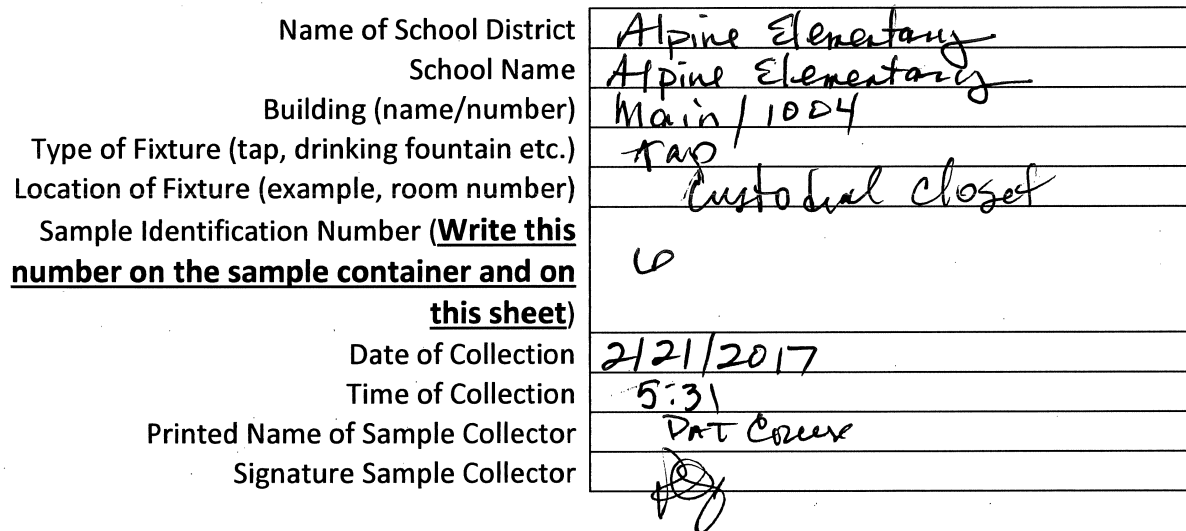 Name of School District Alpine Elementary
School Name Alpine Elementary
Building (name/number) Main / 1004
Type of Fixture (tap, drinking fountain etc.) tap
Location of Fixture (example, room number) Custodial Closet
Sample Identification Number (Write this
number on the sample container and on 6
this sheet)
Date of Collection 2/21/2017
Time of Collection 5:31
Printed Name of Sample Collector PAT
Signature Sample Collector